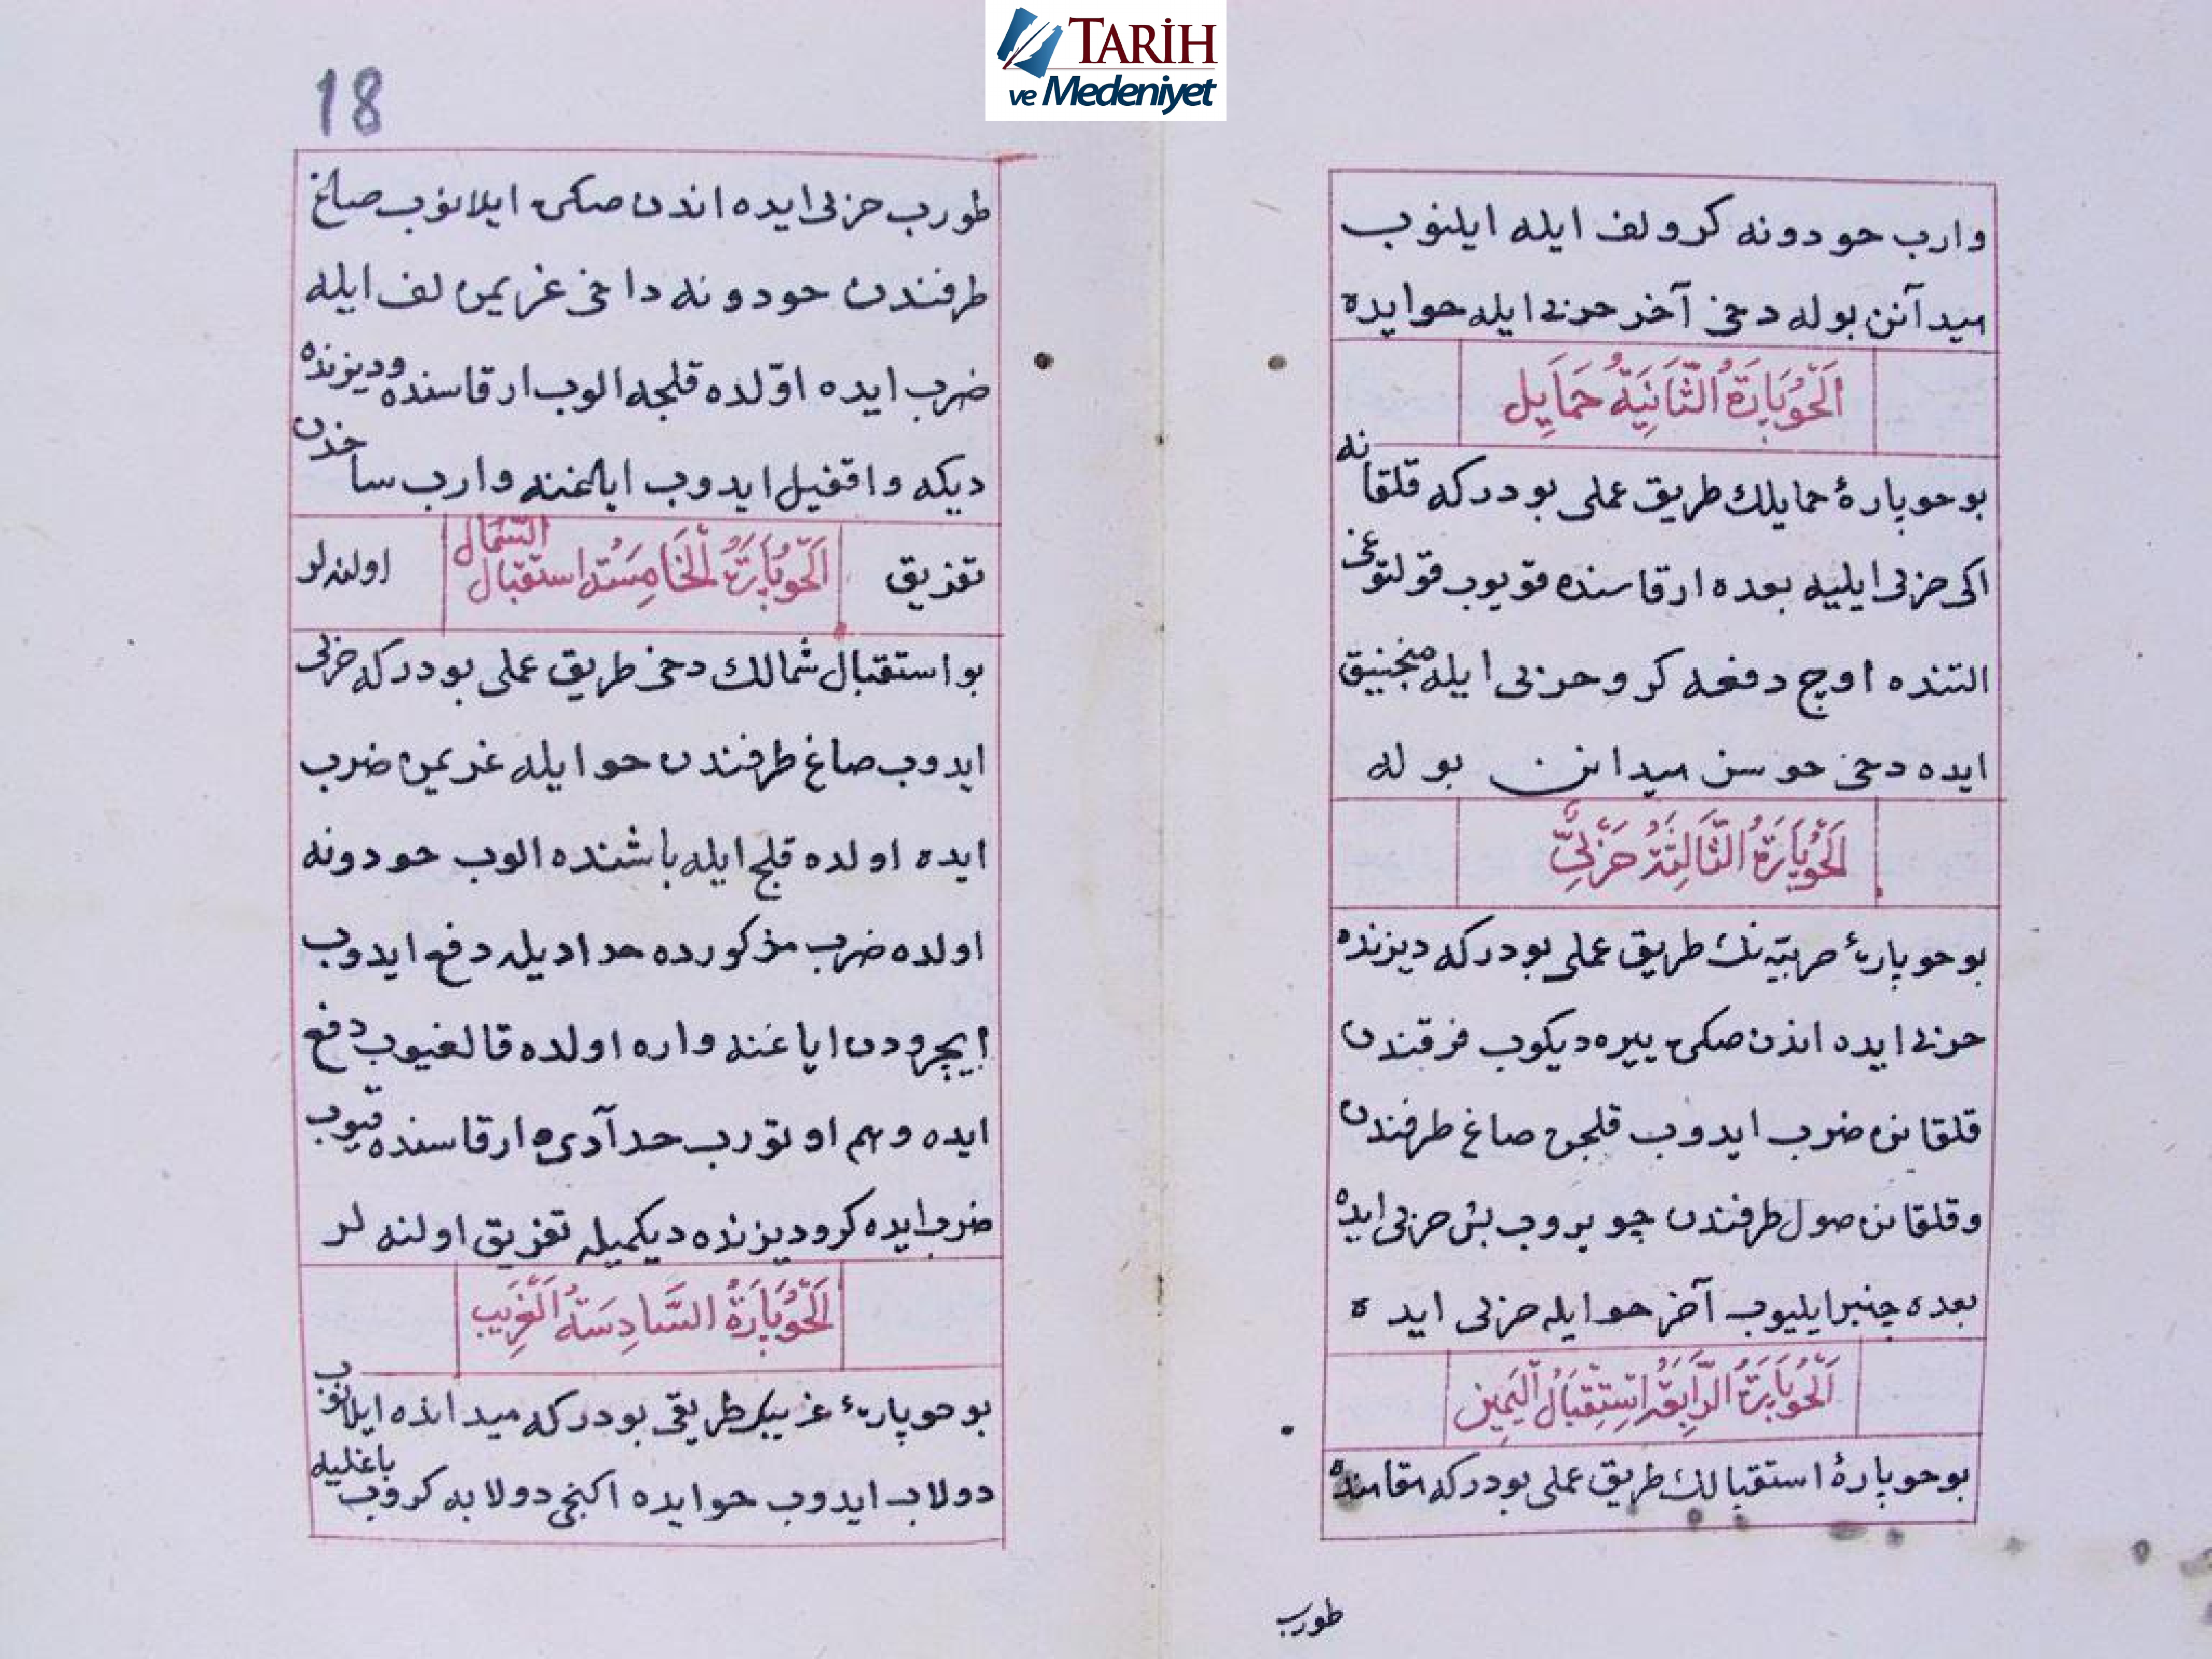 TARİH
ve Medeniyet
18
وارب حودونه کرولف ایله ایلنوب
میدآنن بوله دخی آخر حزبی ایله حوایده
اَلْحَوُبَارَةُ الثَّانِيَةُ حَمَايِل
بو حوپارهٔ حمایلك طریق عملی بودرکه قلقانه
اکی حزبی ایلیه بعده ارقاسنده قویوب قولتوغی
التنده اوچ دفعه کرو حزبی ایله منجنیق
ایده دخی حو سن میدانن بوله
اَلْحَوُبَارَةُ الثَّالِثَةُ حَرْبِيّ
بو حوپارهٔ حربیّه نك طریق عملی بودرکه دیزنده
حزبی ایده اندن صکره ییره دیکوب فرقندن
قلقانی ضرب ایدوب قلجی صاغ طرفندن
وقلقانی صول طرفندن چویروب بش حزبی ایده
بعده چنبر ایلیوب آخر حوایله حزبی ایده
اَلْحَوُبَارَةُ الرَّابِعَةُ اِسْتِقْبَالُ الْيَمِين
بو حوپارهٔ استقبالك طریق عملی بودرکه مقامنده
طورب
طورب حزبی ایده اندن صکره ایلانوب صاغ
طرفندن حودونه داخی غریمی لف ایله
ضرب ایده اوّلده قلجه الوب ارقاسنده ودیزنده
دیکه واقفیل ایدوب ایاغنه وارب ساخدن
تفریق اَلْحَوُبَارَةُ الْخَامِسَةُ استقبال الشمال اولنه لر
بو استقبال شمالك دخی طریق عملی بودرکه حزبی
ایدوب صاغ طرفندن حوایله غریمی ضرب
ایده اولده قلج ایله باشنده الوب حودونه
اولده ضرب مذکورده حدادیله دفع ایدوب
ایچرودن ایاغنه واره اولده قالغیوب دفع
ایده وهم اوتورب حدآدی ارقاسنده قیوب
ضرب ایده کرودیزنده دیکمیله تفریق اولنه لر
اَلْحَوُبَارَةُ السَّادِسَةُ الْغَرِيب
بو حوپارهٔ غریبك طریقی بودرکه میدانده ایلانوب
دولاب ایدوب حوایده اکنجی دولابه کروب باغلیه